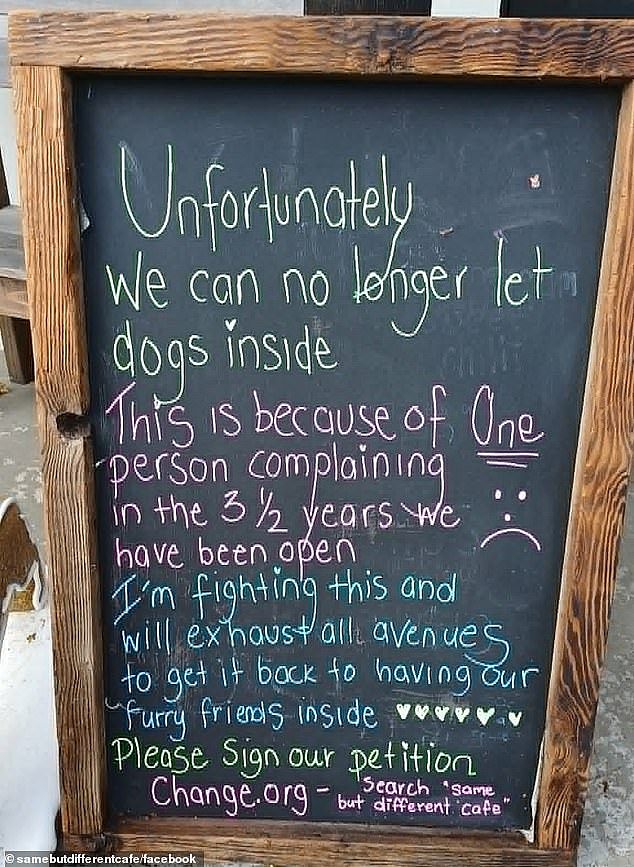 Unfortunately
We can no longer let
dogs inside
This is because of One
person complaining
in the 3 1/2 years we
have been open
I'm fighting this and
will exhaust all avenues
to get it back to having our
furry friends inside
Please Sign our petition
Change.org - Search "same
but different cafe"
© samebutdifferentcafe/facebook